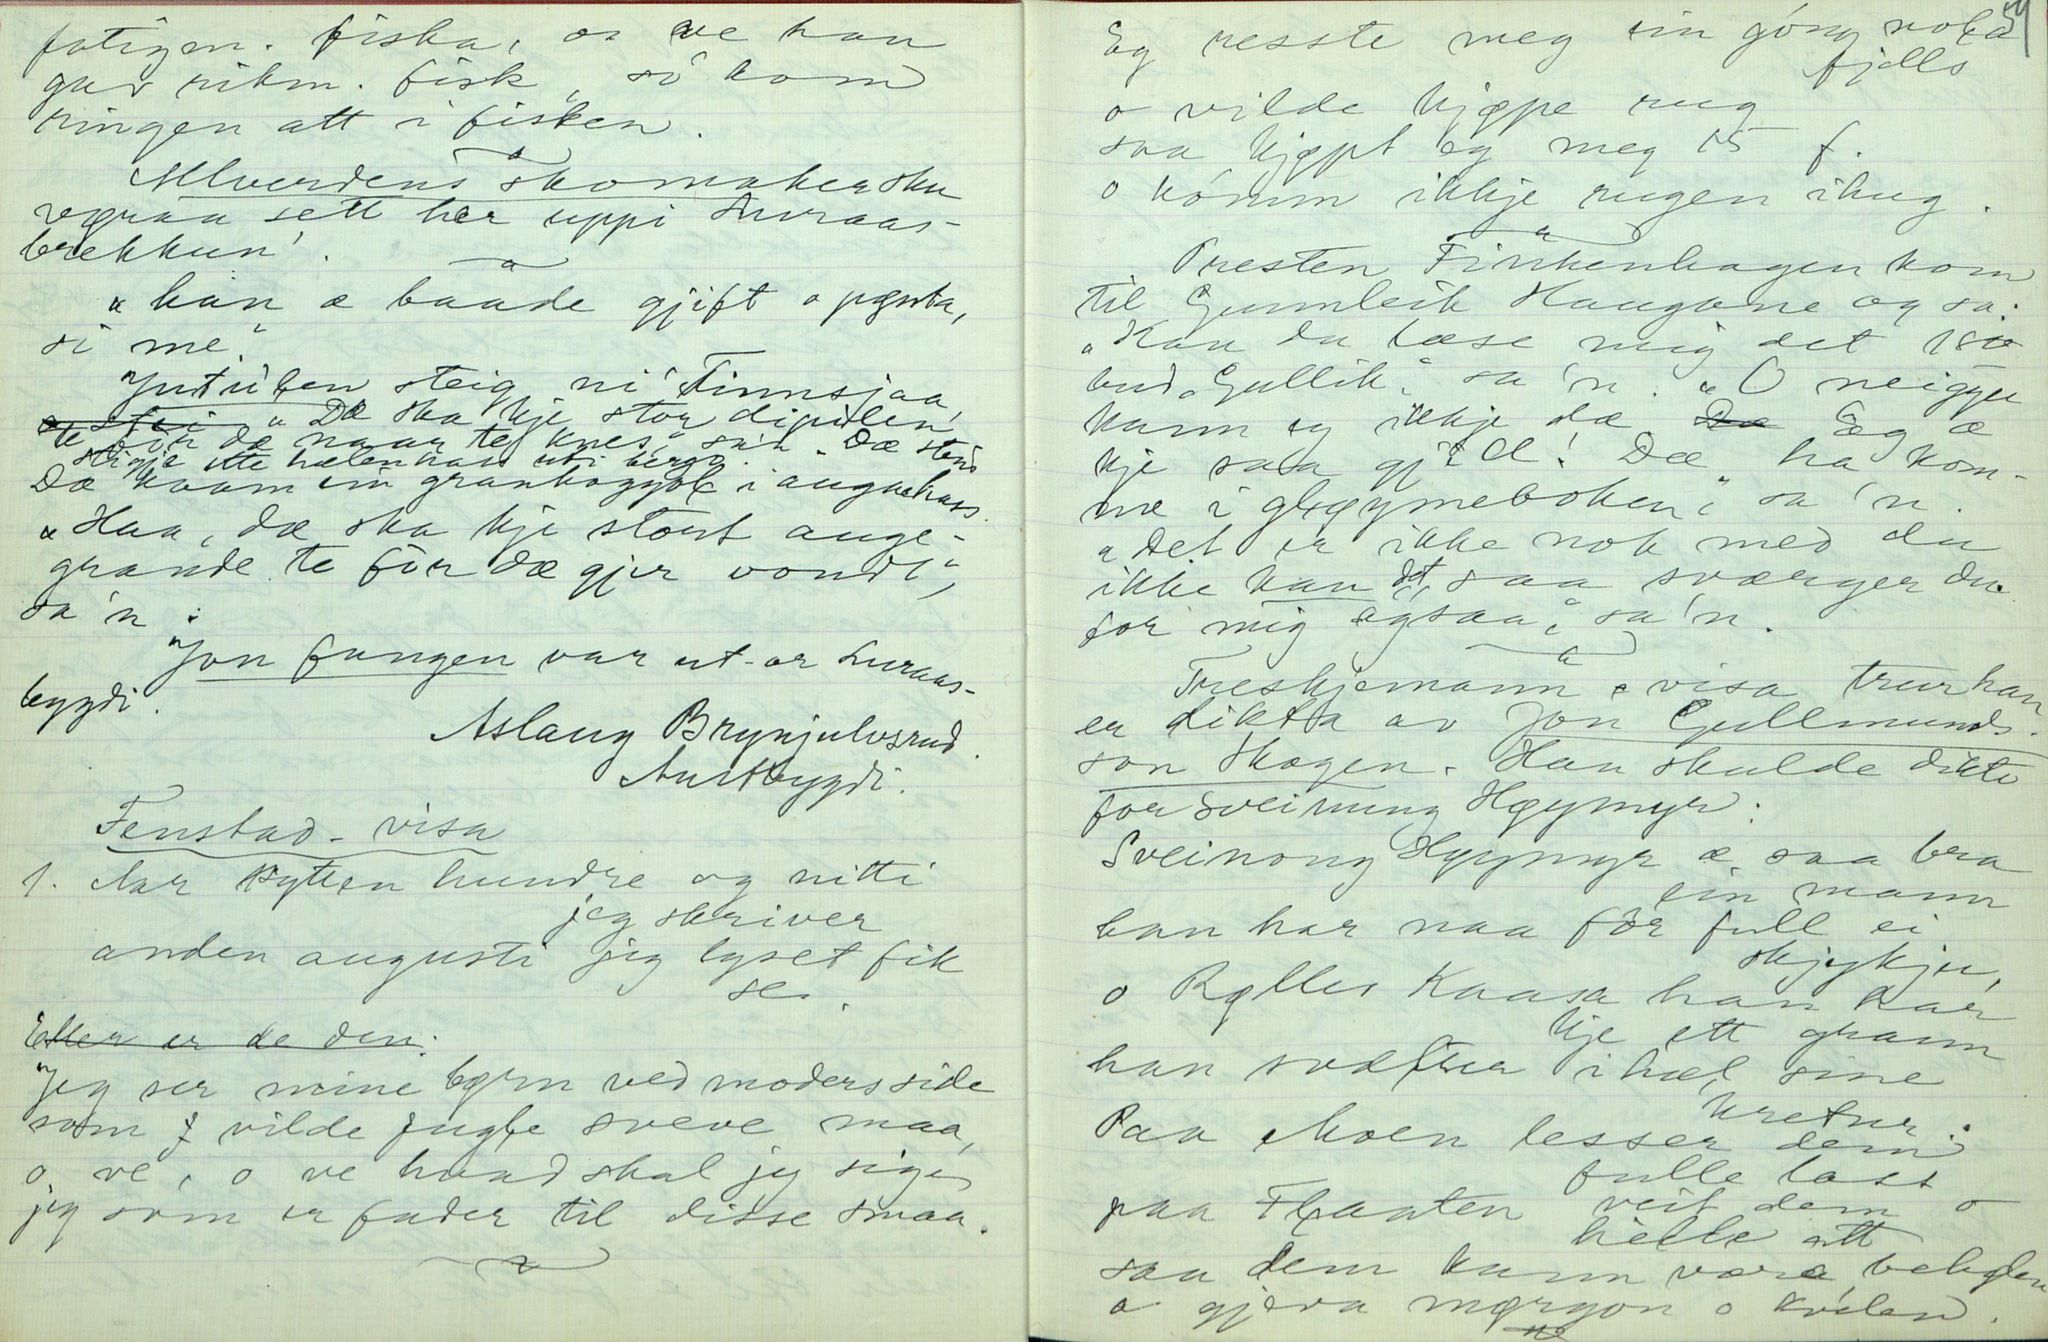 fatigm. fiska, os ve han
gav rikm. fisk, so kom
ringen att i fisken.
Alverdens skomaker ska
vøraa sett her uppi Luraas-
brekkun'.
"han æ baade gjift o pænta,
si me."
Jutulen steig ni' Finnsjaa,
"Dæ ska kje stor dipilen
te för dæ naar te knes," sa'n. Dæ
stigje itte hælen hass uti bergo.
Dæ kaam ein grankoggul i augahass.
"Haa, dæ ska kje stort auge-
grande te för dæ gjer vondt",
sa'n.
"Jon fungen var ut-or Luraas-
bygdi.
Aslaug Brynjulvsrud.
Austbygdi.
Fenstad-visa
1. Aar sytten hundre og nitti
jeg skriver
anden augusti jeg lyset fik
se.
Eller er de den:
Jeg ser mine børn ved moders side
som vilde fugle sveve maa,
o ve, o ve hvad skal jeg sige,
jeg som er fader til disse smaa.
Eg resste meg ein góng nola
fjells
o vilde kjøpe rug
saa kjøpt eg meg 15 f.
o kómm ikkje rugen ihug.
Presten Finkenhagen kom
til Gunnleik Haugane og sa:
"Kan du læse mig det 18de
bud, Gullik," sa'n. "O neiggu
kann eg ikkje dæ. Eg æ
kje saa gjild! Dæ ha kom-
me i gløymeboken," sa'n.
"Det er ikke nok med du
ikke kan det, saa sværger du
for mig ogsaa," sa'n.
Treskjemann-visa trur han
er dikta av Jon Gullmunds-
son Skogen. Han skulde dikte
for Sveinung Høymyr:
Sveinong Høymyr æ saa bra
ein mann
han har naa för full ei
skjykju,
o Rølleiv Kaasa han har
kje ett grann
han svælter ihæl sine
kretur.
Paa Moen lesser dem
fulle lass
paa Flaaten veit dem o
helle att
saa dem kann være belgen
o gjeva mørgon o kvelen.